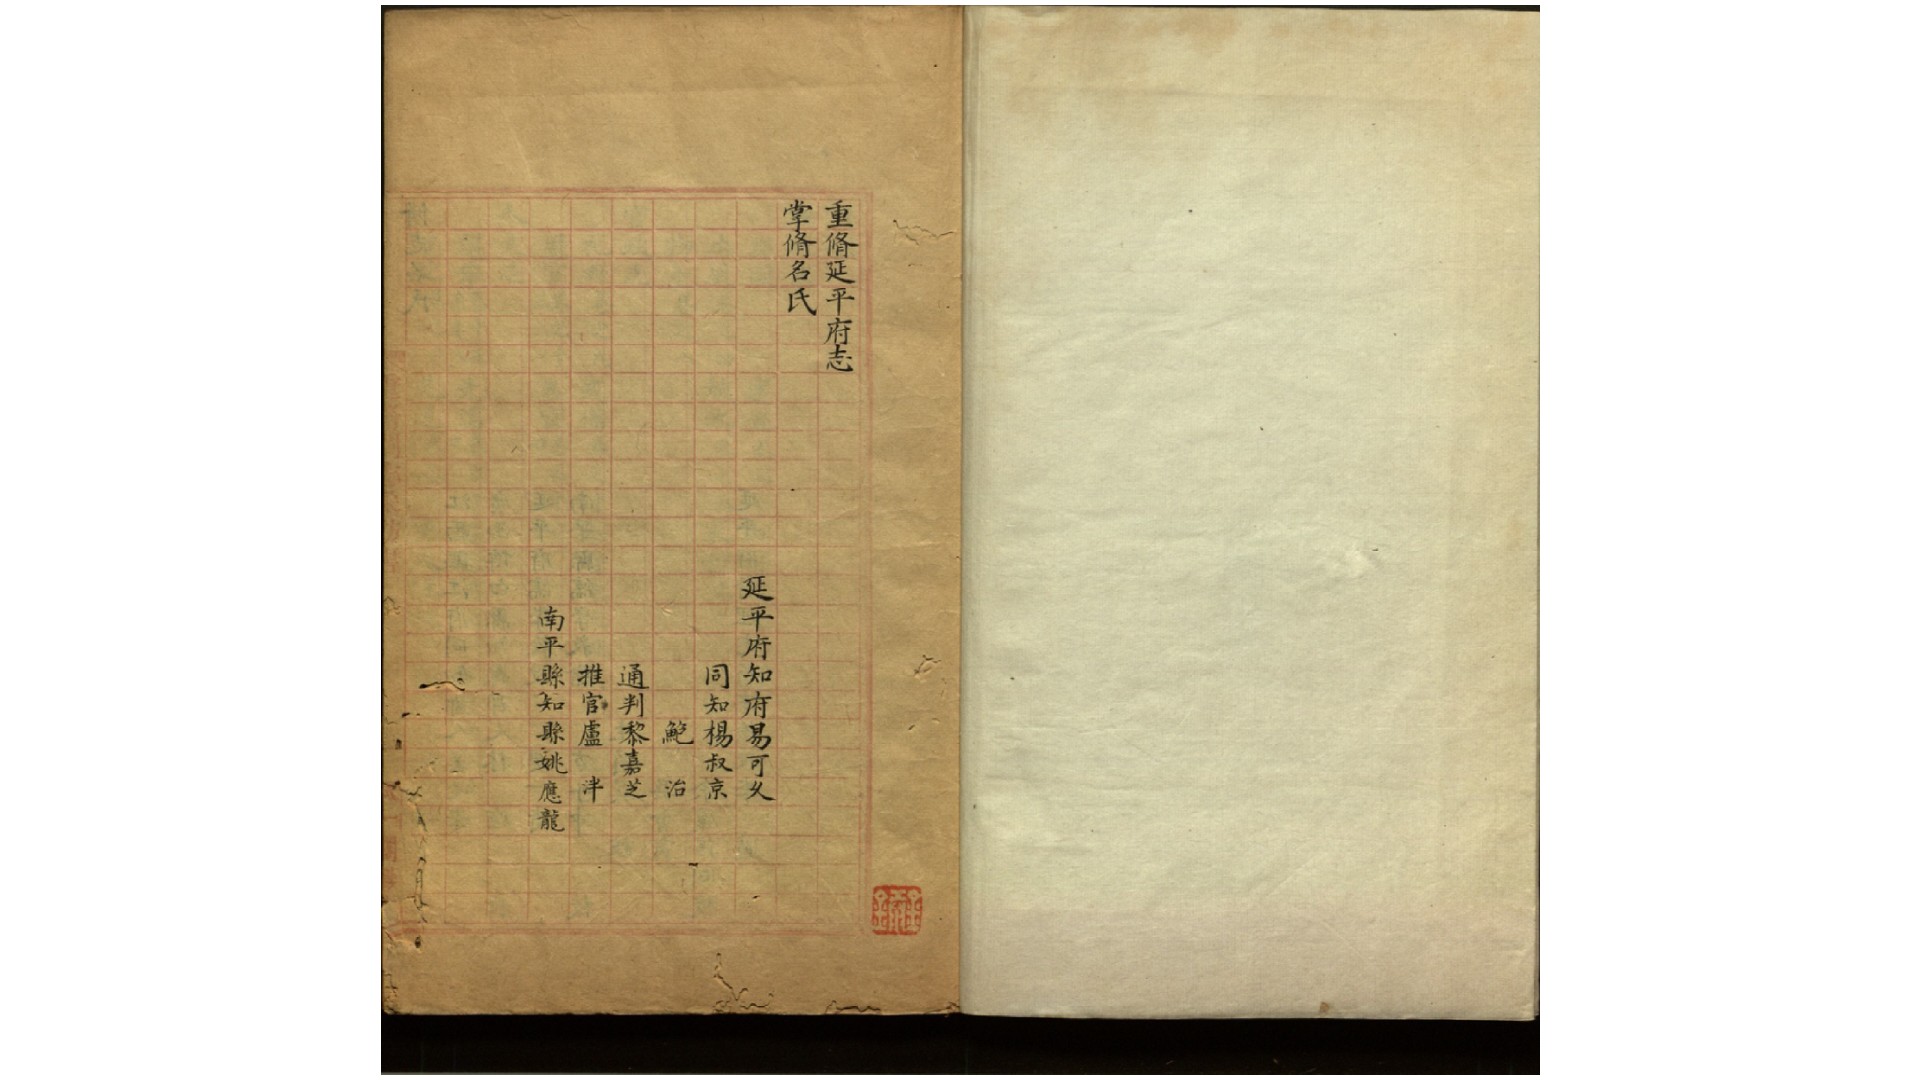 重脩延平府志
掌脩名氏
延平府知府易可久
同知楊叔京
鮑治
通判黎嘉芝
推官盧泮
南平縣知縣姚應龍